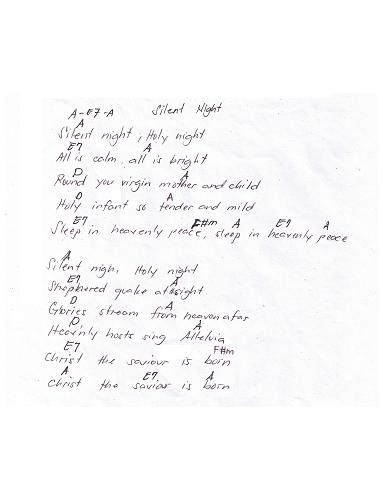 A-E7-A Silent Night
A
Silent night, Holy night
E7 A
All is calm, all is bright
D A
Round you virgin mother and child
D A
Holy infant so tender and mild
E7 F#m A E7 A
Sleep in heavenly peace, sleep in heavenly peace
A
Silent nigh, Holy night
E7 A
Shephered quake at sight
D A
Glories stream from heaven afar
D A
Heav'nly hosts sing Alleluia
E7 F#m
Christ the saviour is born
A E7 A
Christ the saviour is born